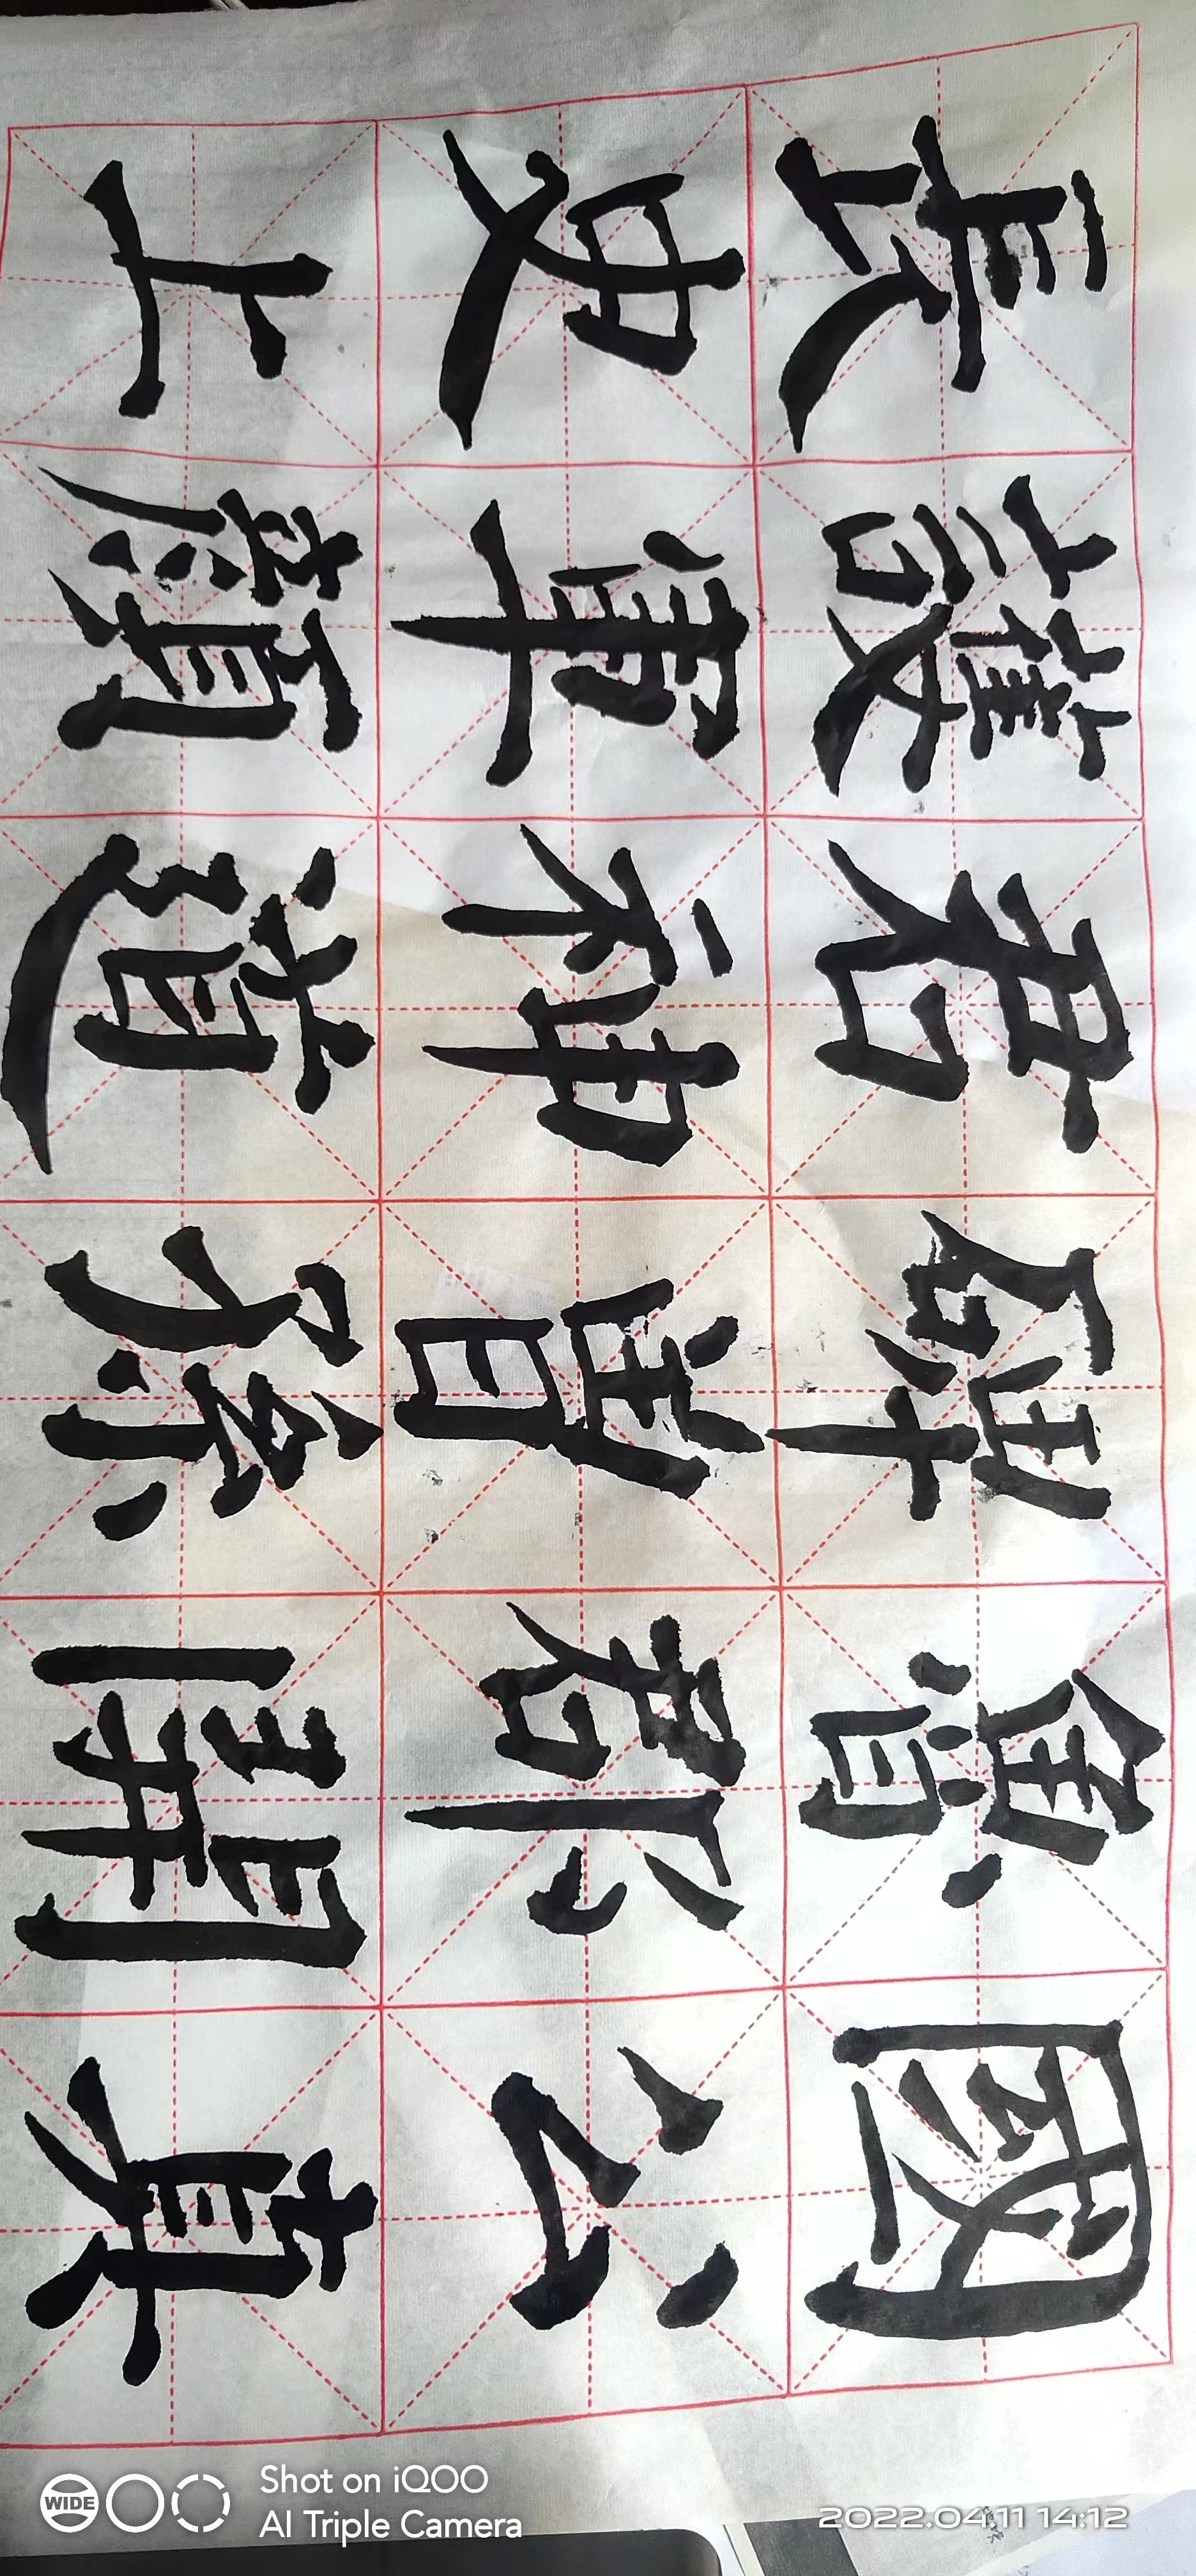 長史上
護軍顏
君神道
碑曾孫
魯郡開
國公真
WIDE
Shot on iQOO
AI Triple Camera
2022.04.11 14:12